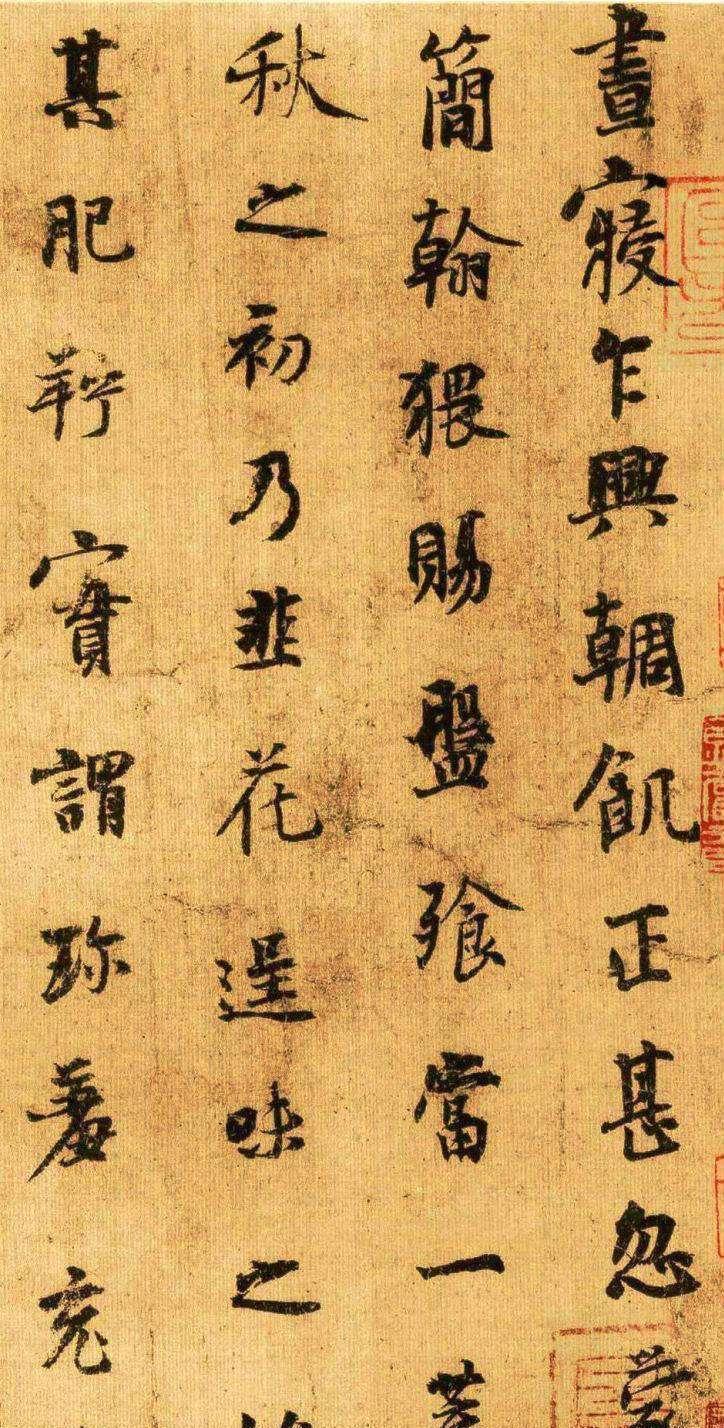 晝寢乍興輖飢正甚忽蒙
簡翰猥賜盤飱當一葉
秋之初乃韭花逞味之始
其肥羜實謂珎羞充